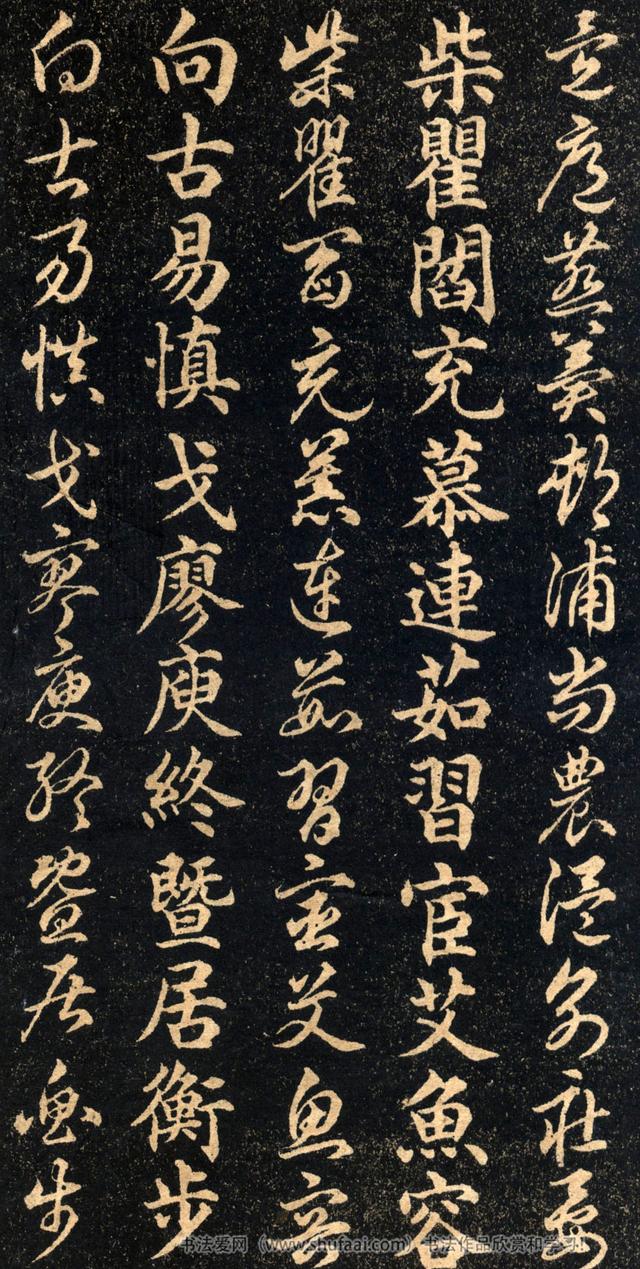 邊扈燕冀郟浦尚農温别莊晏
柴瞿閻充慕連茹習宦艾魚容
柴瞿閻充慕連茹習宦艾魚容
向古易慎戈廖庾終暨居衡步
向古易慎戈廖庾終暨居衡步
书法爱网（www.shufaai.com）书法作品欣赏和学习!